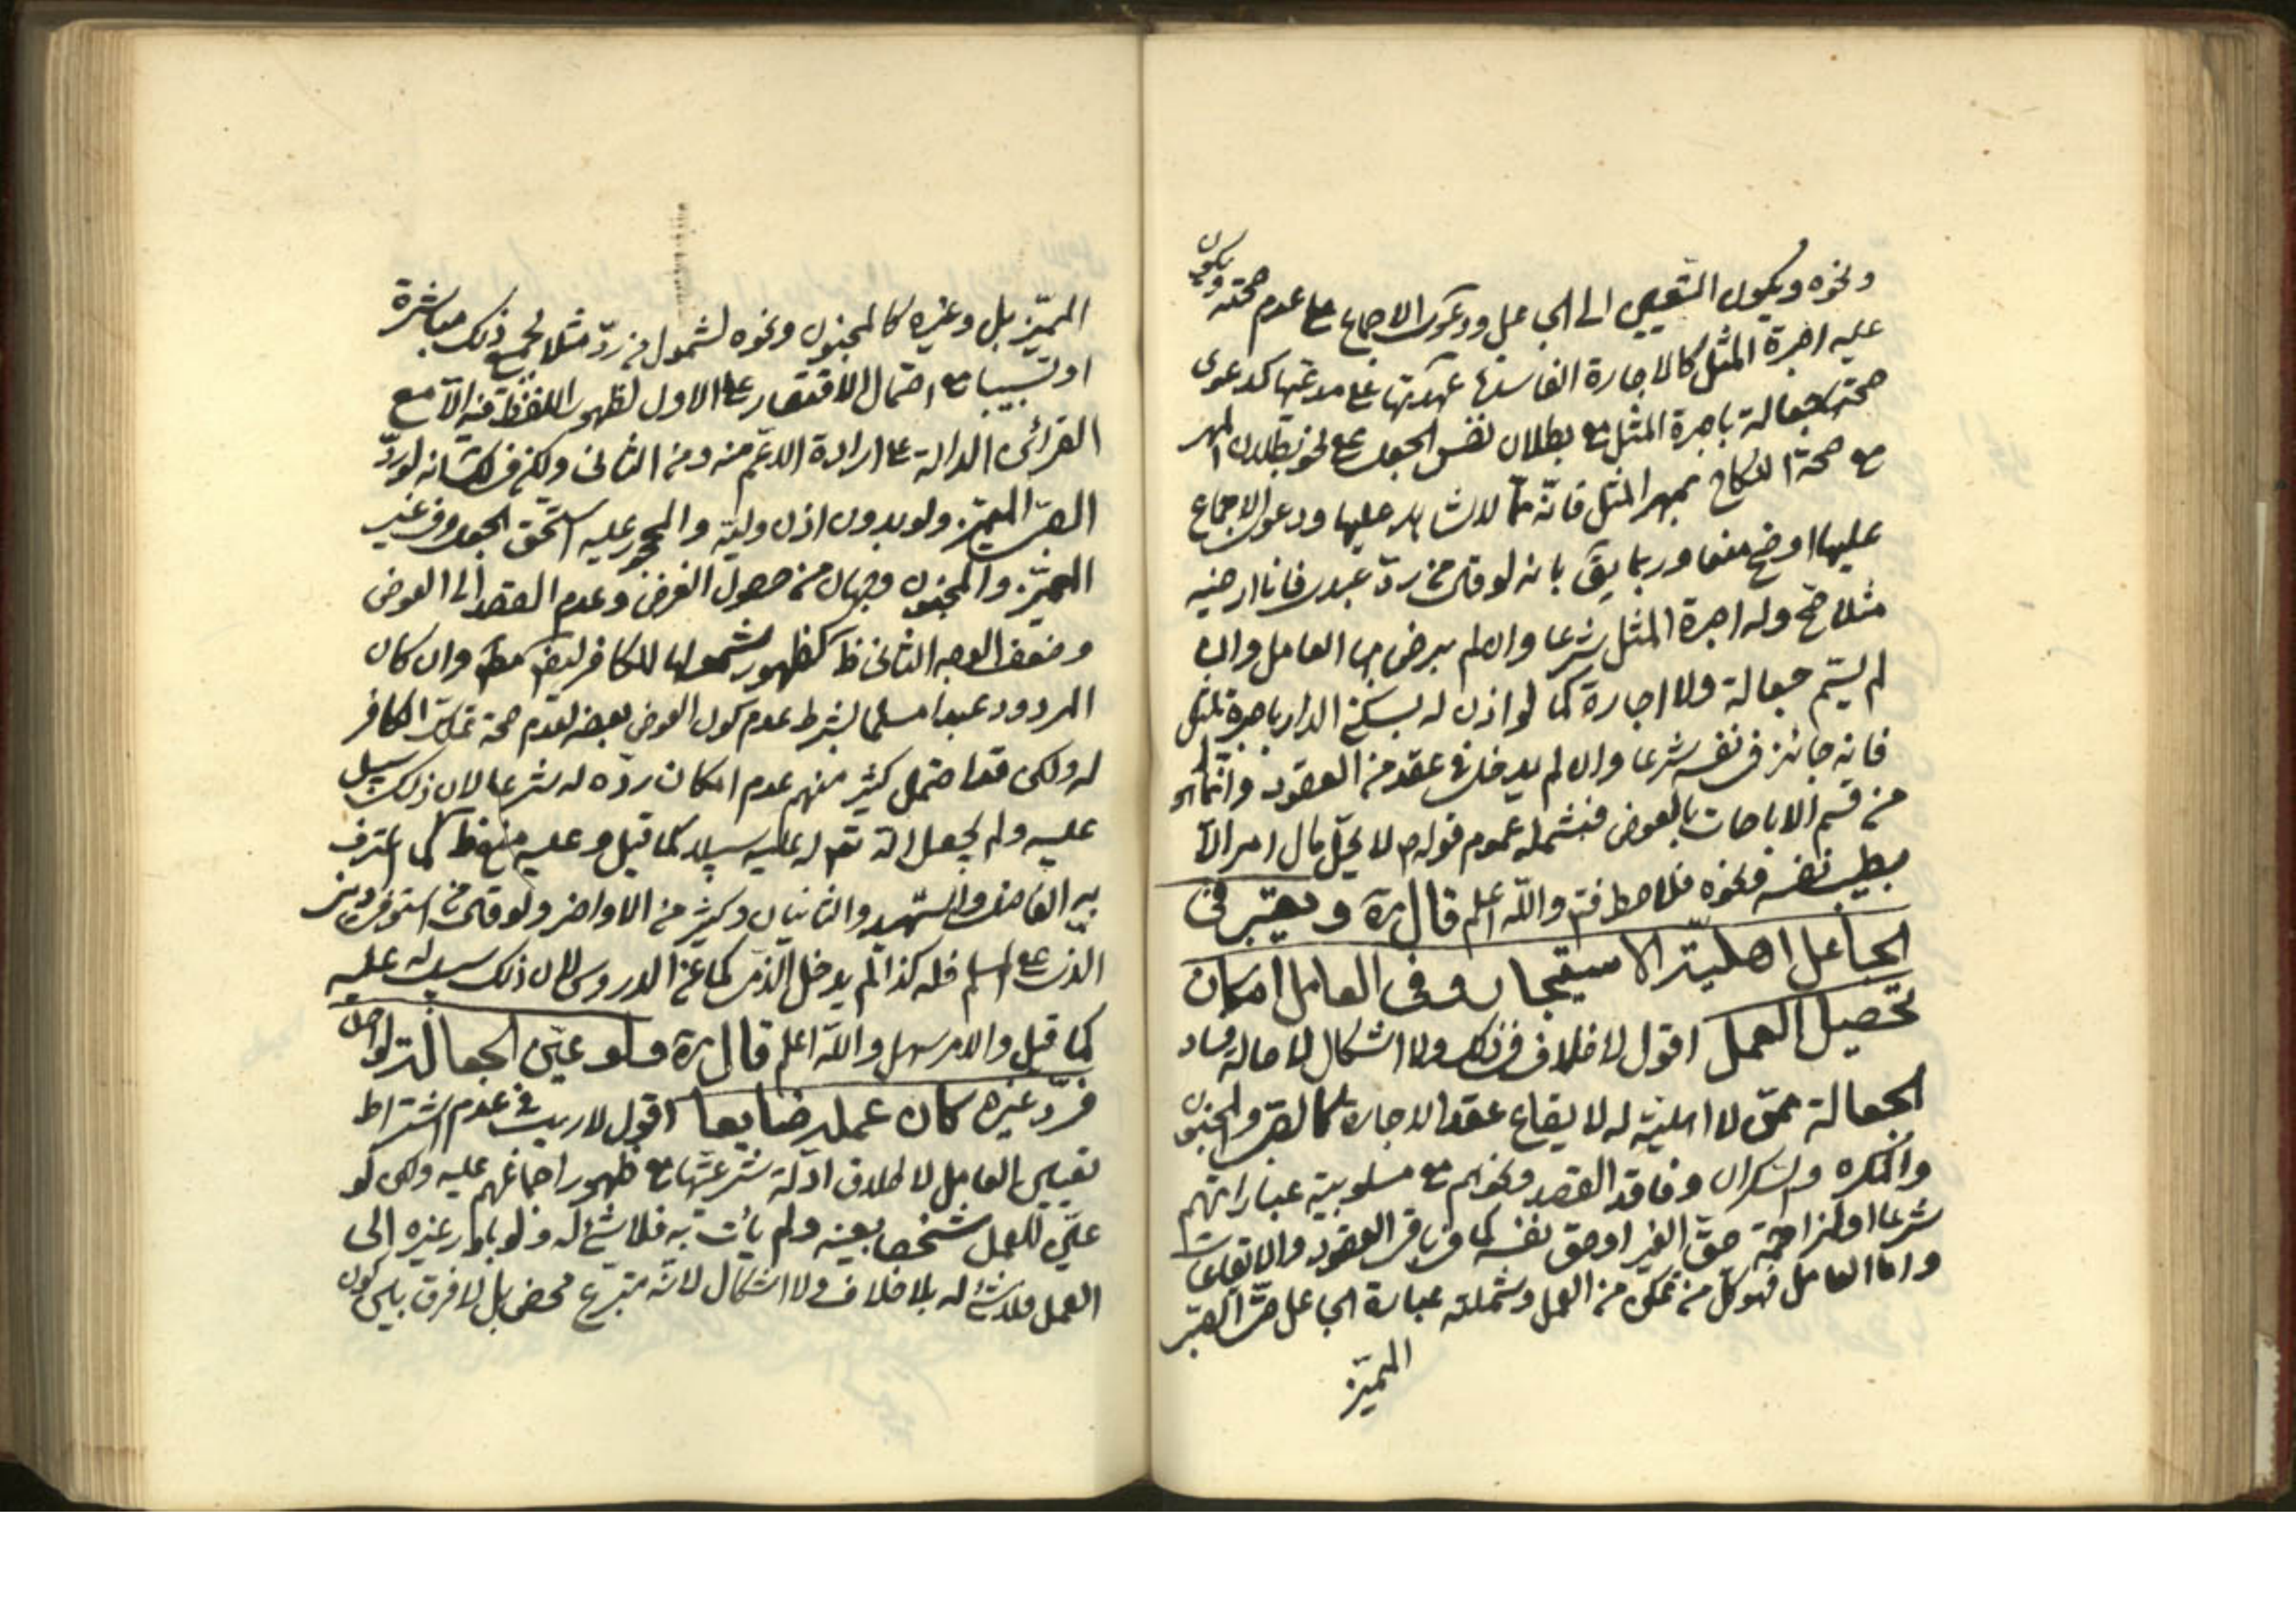 ونحوه ويكون التعيين الى الجاعل ودعوى الاجماع على عدم صحته ويكون
عليه اجرة المثل كالاجارة الفاسدة عهدتها على مدعيها كدعوى
صحته جعالة باجرة المثل مع بطلان نفس الجعل على نحو بطلان المهر
مع صحة النكاح بمهر المثل فانه مما لا شاهد عليها ودعوى الاجماع
عليها اوضح منعا وربما يق بانه لو قال من رد عبدى فانا ارضيه
مثلا صح وله اجرة المثل شرعا وان لم يرض بها العامل وان
لم يسم جعالة ولا اجارة كما لو اذن له بسكنى الدار باجرة المثل
فانه جائز فى نفسه شرعا وان لم يدخل فى عقد من العقود وانما هو
من قسم الاباحات بالعوض فيشمله عموم قوله ص لا يحل مال امرء الا
بطيب نفسه ونحوه فلاحظ فتم والله اعلم قال ره ويعتبر فى
الجاعل اهلية الاستيجار وفى العامل امكان
تحصيل العمل اقول لا خلاف فى ذلك ولا اشكال لاصالة فساد
الجعالة ممن لا اهلية له لايقاع عقد الاجارة كالصبى والمجنون
والمكره والسكران وفاقد القصد ونحوهم مع مسلوبية عباراتهم
شرعا او لمزاحمة حق الغير او حق نفسه كما فى باقى العقود والايقاعات
واما العامل فهو كل من تمكن من العمل وشملته عبارة الجاعل حتى الصبى
المميز
المميز بل وغيره كالمجنون ونحوه لشمول من رد مثلا لجميع ذلك مباشرة
او تسبيبا مع احتمال الاقتصار على الاول لظهور اللفظ فيه الا مع
القرائن الدالة على ارادة الاعم منه ومن الثانى ولكن فى لك انه لو رد
الصبى المميز ولو بدون اذن وليه والمحجور عليه استحق الجعل وفى غير
المميز والمجنون وجهان من حصول الغرض وعدم القصد الى العوض
وضعف الوجه الثانى ظ كظهور شمولها للكافر ايضا مط وان كان
المردود عبدا مسلما بشرط عدم كون العوض بعضه لعدم صحة تملك الكافر
له ولكن قد احتمل كثير منهم عدم امكان رده له شرعا لان ذلك سبيل
عليه ولم يجعل الله تع له عليه سبيلا كما قيل وعليه منع ظ كما اعترف
به الفاضل والشهيد والثانيان وكثير من الاواخر ولو قال من استوفى دينى
الذى على المسلم فله كذا لم يدخل الذمى كما عن الدروس لان ذلك سبيل له عليه
كما قيل والامر سهل والله اعلم قال ره ولو عين الجعالة لواحد
فرد غيره كان عمله ضايعا اقول لا ريب فى عدم اشتراط
تعيين العامل لاطلاق ادلة شرعيتها مع ظهور اجماعهم عليه ولكن لو
عين للعمل شخصا بعينه ولم يأت به فلا شئ له ولو بادر غيره الى
العمل فلا شئ له بلا خلاف ولا اشكال لانه متبرع محض بل لا فرق بين كون